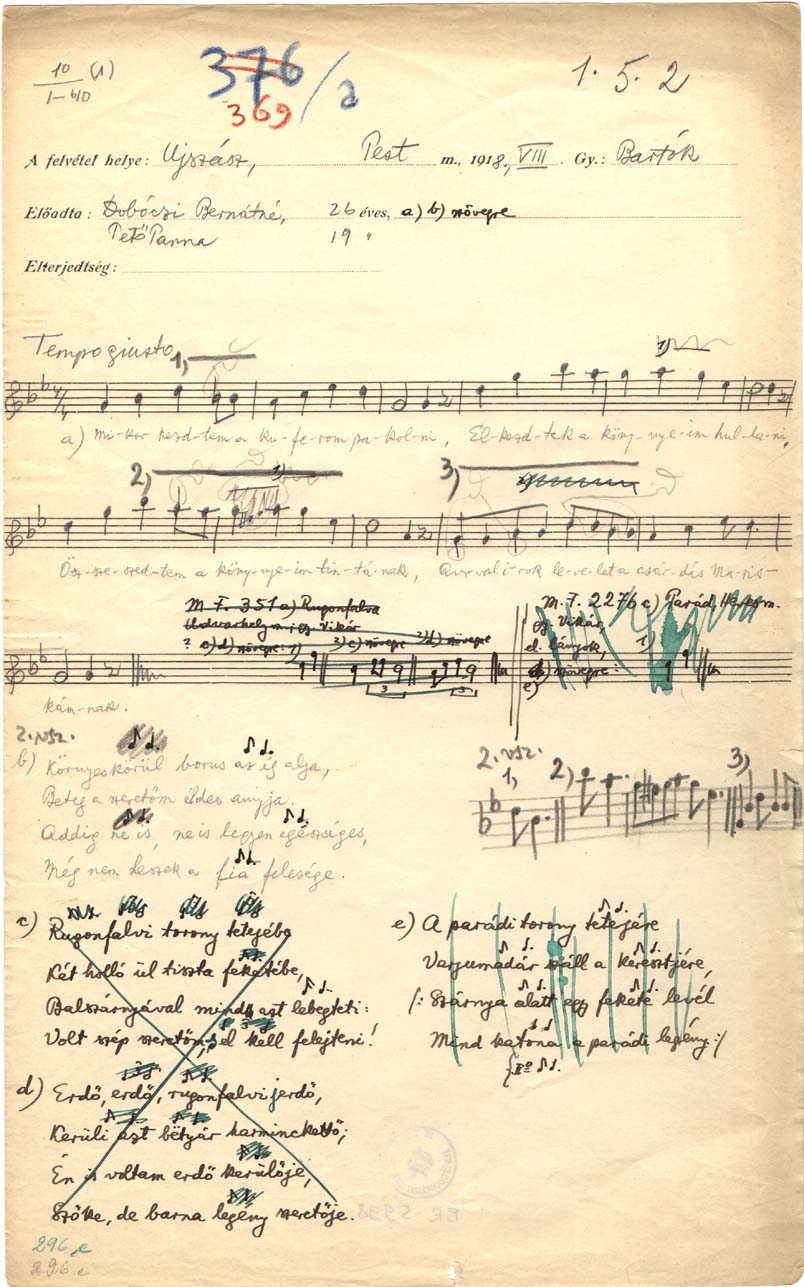 10 (1)
1-40
376/a
369
1. 5. 2
A felvétel helye: Ujszász, Pest m., 1918, VIII. Gy.: Bartók
Előadta: Dobóczi Bernátné, 26 éves, a) b) szövegre
Pető Panna 19 "
Elterjedtség:
Tempo giusto 1)
a) Mi-kor kezd-tem a ku-fe-rom pa-kol-ni, El-kezd-tek a köny-nye-im hul-la-ni,
2) 3)
Ösz-sze-szed-tem a köny-nye-im tin-tá-nak, Av-val i-rok le-ve-let a csár-dás Ma-ris-
M. F. 351 a) Rugonfalva
Udvarhely m. gy. Vikár
? c) d) szövegre: 1) 3) c) szövegre 2) d) szövegre
M. F. 2276 c) Parád, Heves m.
gy. Vikár,
el. lányok,
szövegre:
e)
1)
3 3
kám-nak.
2. vsz.
b) Környeskörül borus az ég alja,
Beteg a szeretőm édes anyja.
Addig ne is, ne is legyen egészséges,
Még nem leszek a fia felesége.
2. vsz.
1) 2) 3)
c) Rugonfalvi torony tetejébe
Két holló ül tiszta feketébe,
Balszárnyával mind azt lebegteti:
Volt szép szeretőm, el kell felejteni!
d) Erdő, erdő, rugonfalvi erdő,
Kerüli azt bétyár harminckettő;
Én is voltam erdő kerülője,
Szőke, de barna legény szeretője.
e) A parádi torony tetejére
Varjumadár száll a keresztjére,
/: Szárnya alatt egy fekete levél
Mind katona a parádi legény. :/
296 e
296 e